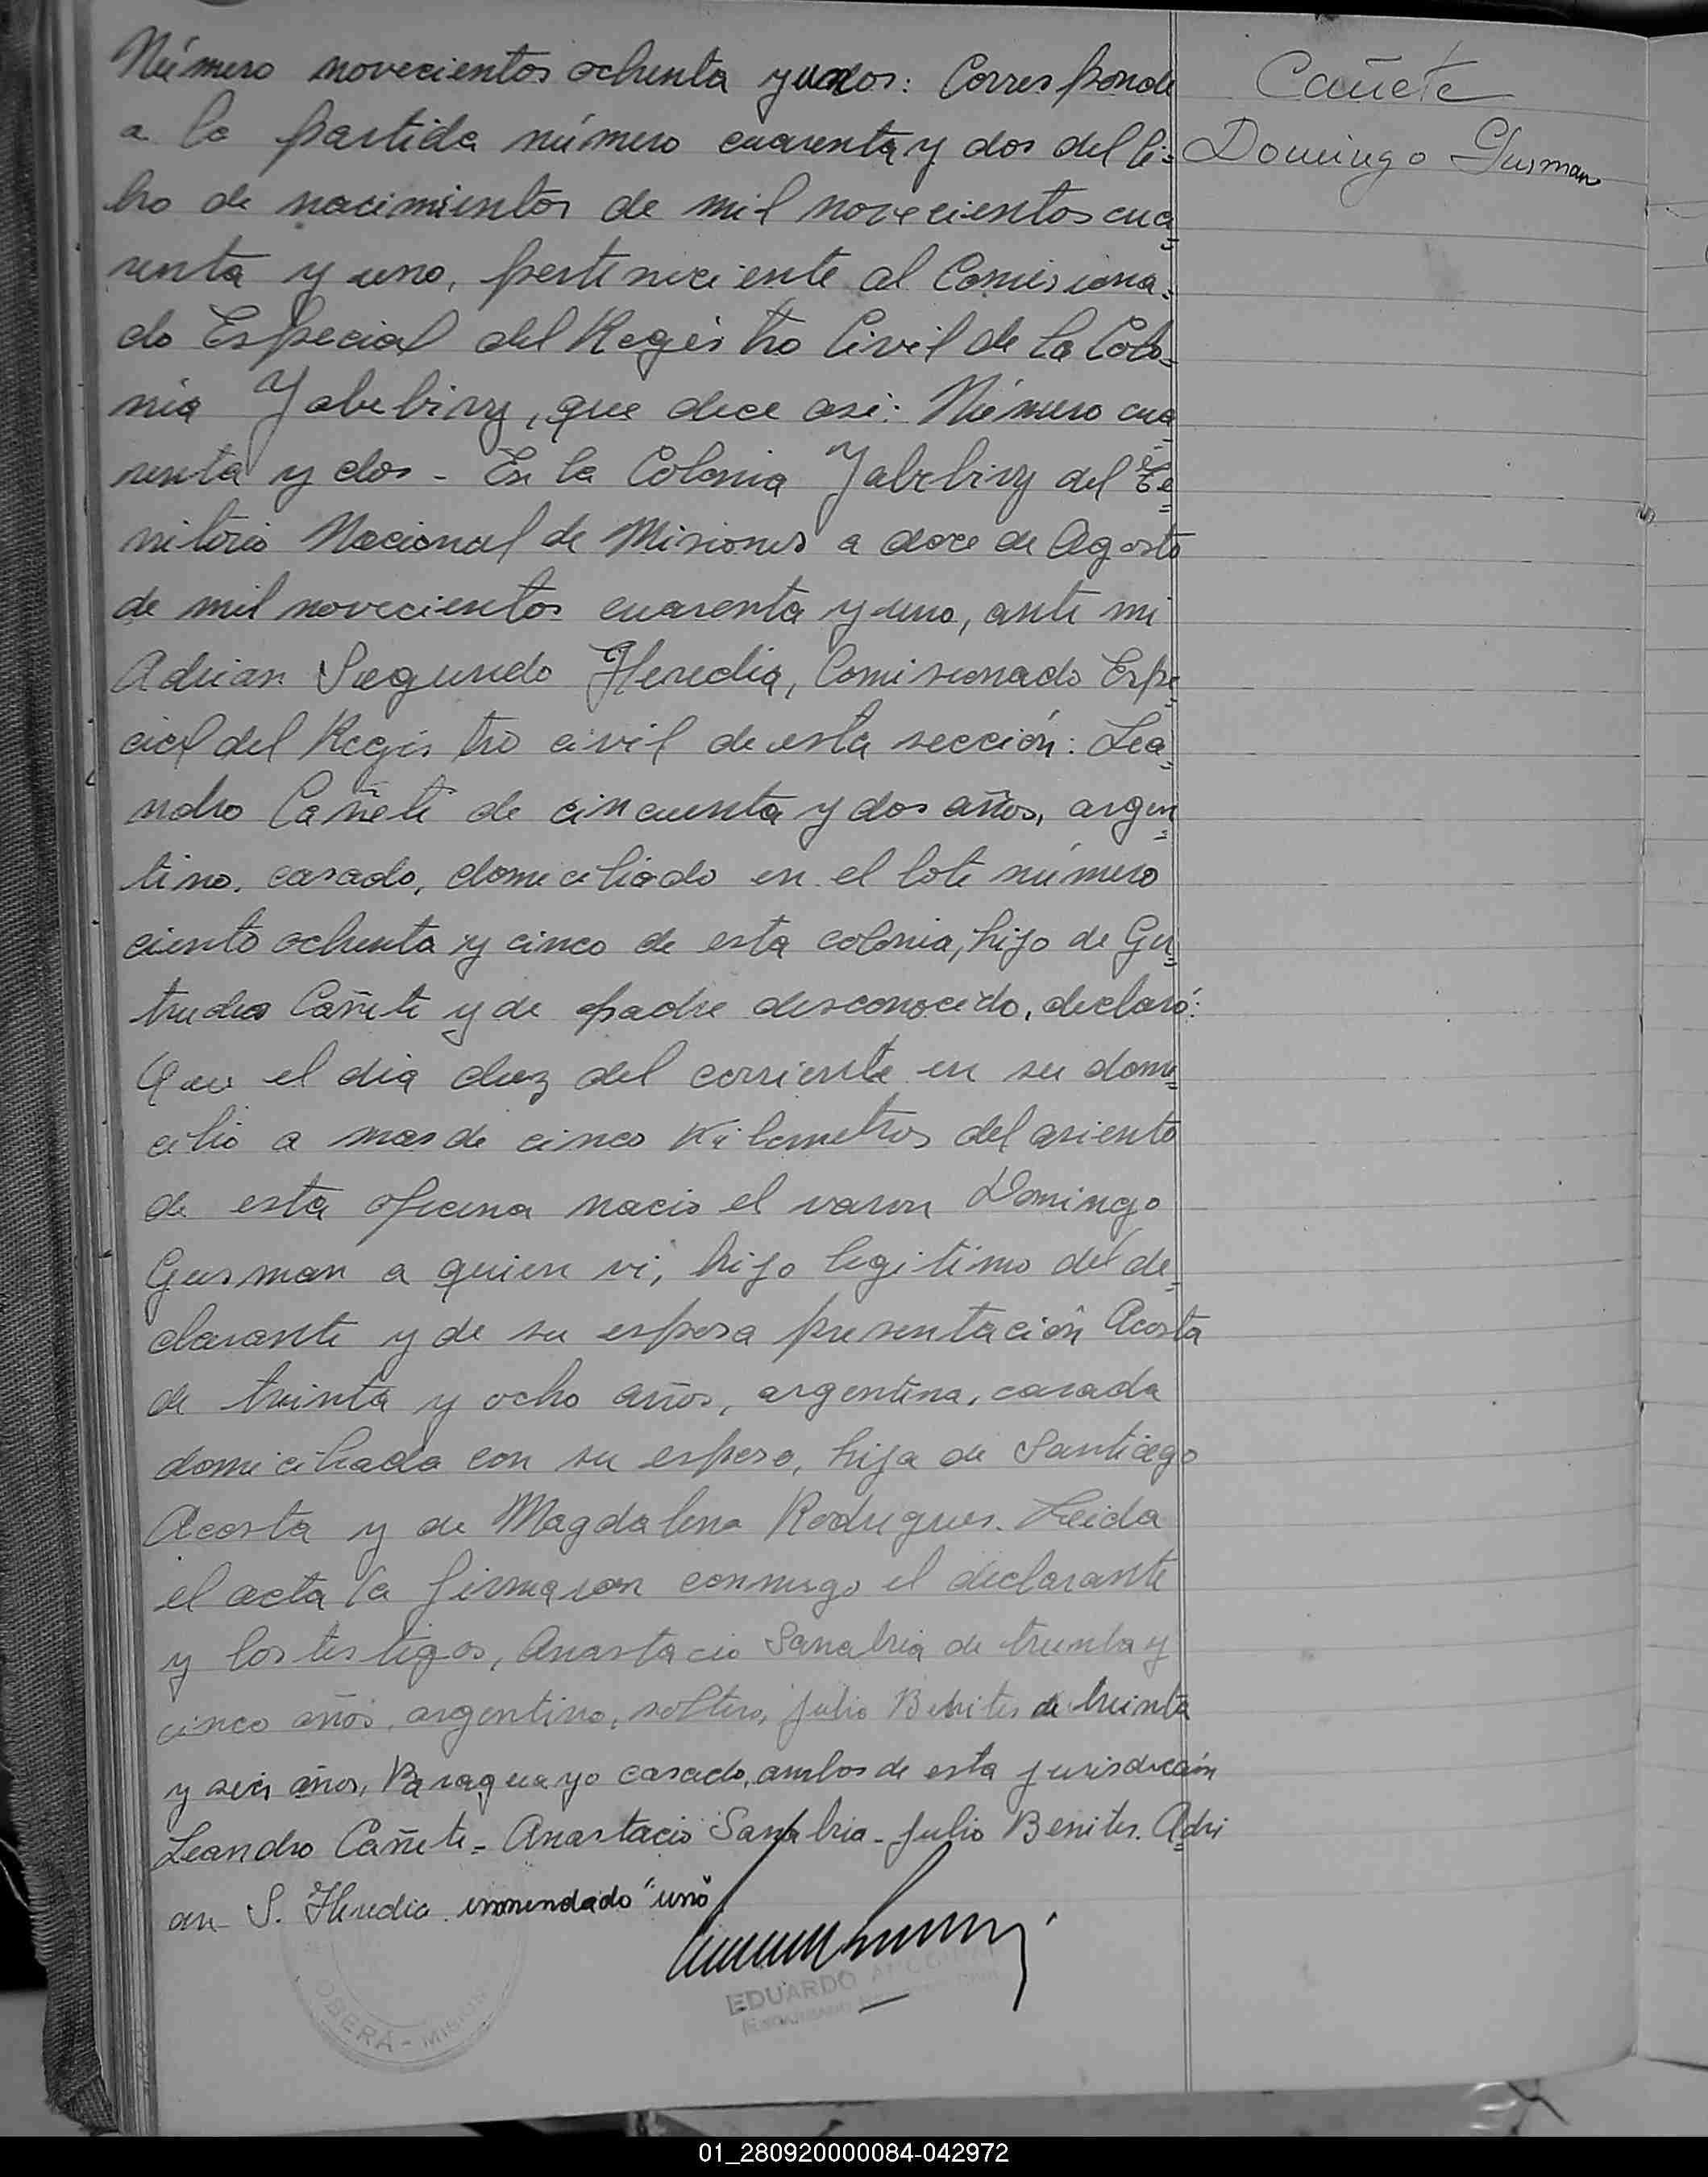 Número novecientos ochenta y dos: Corresponde
a la partida número cuarenta y dos del li=
bro de nacimientos de mil novecientos cua=
renta y uno, perteneciente al Comisiona=
do Especial del Registro Civil de la Colo=
nia Yabebiry, que dice asi: Número cua=
renta y dos - En la Colonia Yabebiry del Te=
rritorio Nacional de Misiones a doce de Agosto
de mil novecientos cuarenta y uno, ante mi
Adrian Segundo Heredia, Comisionado Espe=
cial del Registro civil de esta sección: Lea=
ndro Cañete de cincuenta y dos años, argen=
tino, casado, domiciliado en el lote número
ciento ochenta y cinco de esta colonia, hijo de Ger=
trudes Cañete y de padre desconocido, declaró:
Que el dia diez del corriente en su domi=
cilio a mas de cinco Kilometros del asiento
de esta oficina nacio el varon Domingo
Gusman a quien vi, hijo legitimo del de=
clarante y de su esposa presentación Acosta
de treinta y ocho años, argentina, casada
domiciliada con su esposo, hija de Santiago
Acosta y de Magdalena Rodrigues. Leida
el acta la firmaron conmigo el declarante
y los testigos, Anastacio Sanabria de treinta y
cinco años, argentino, soltero, Julio Benites de treinta
y seis años, Paraguayo casado, ambos de esta jurisdicción
Leandro Cañete = Anastacio Sanabria - Julio Benites. Adri=
an S. Heredia enmendado "uno"
Cañete
Domingo Gusman
OBERÁ - MISIONES
EDUARDO
01_280920000084-042972